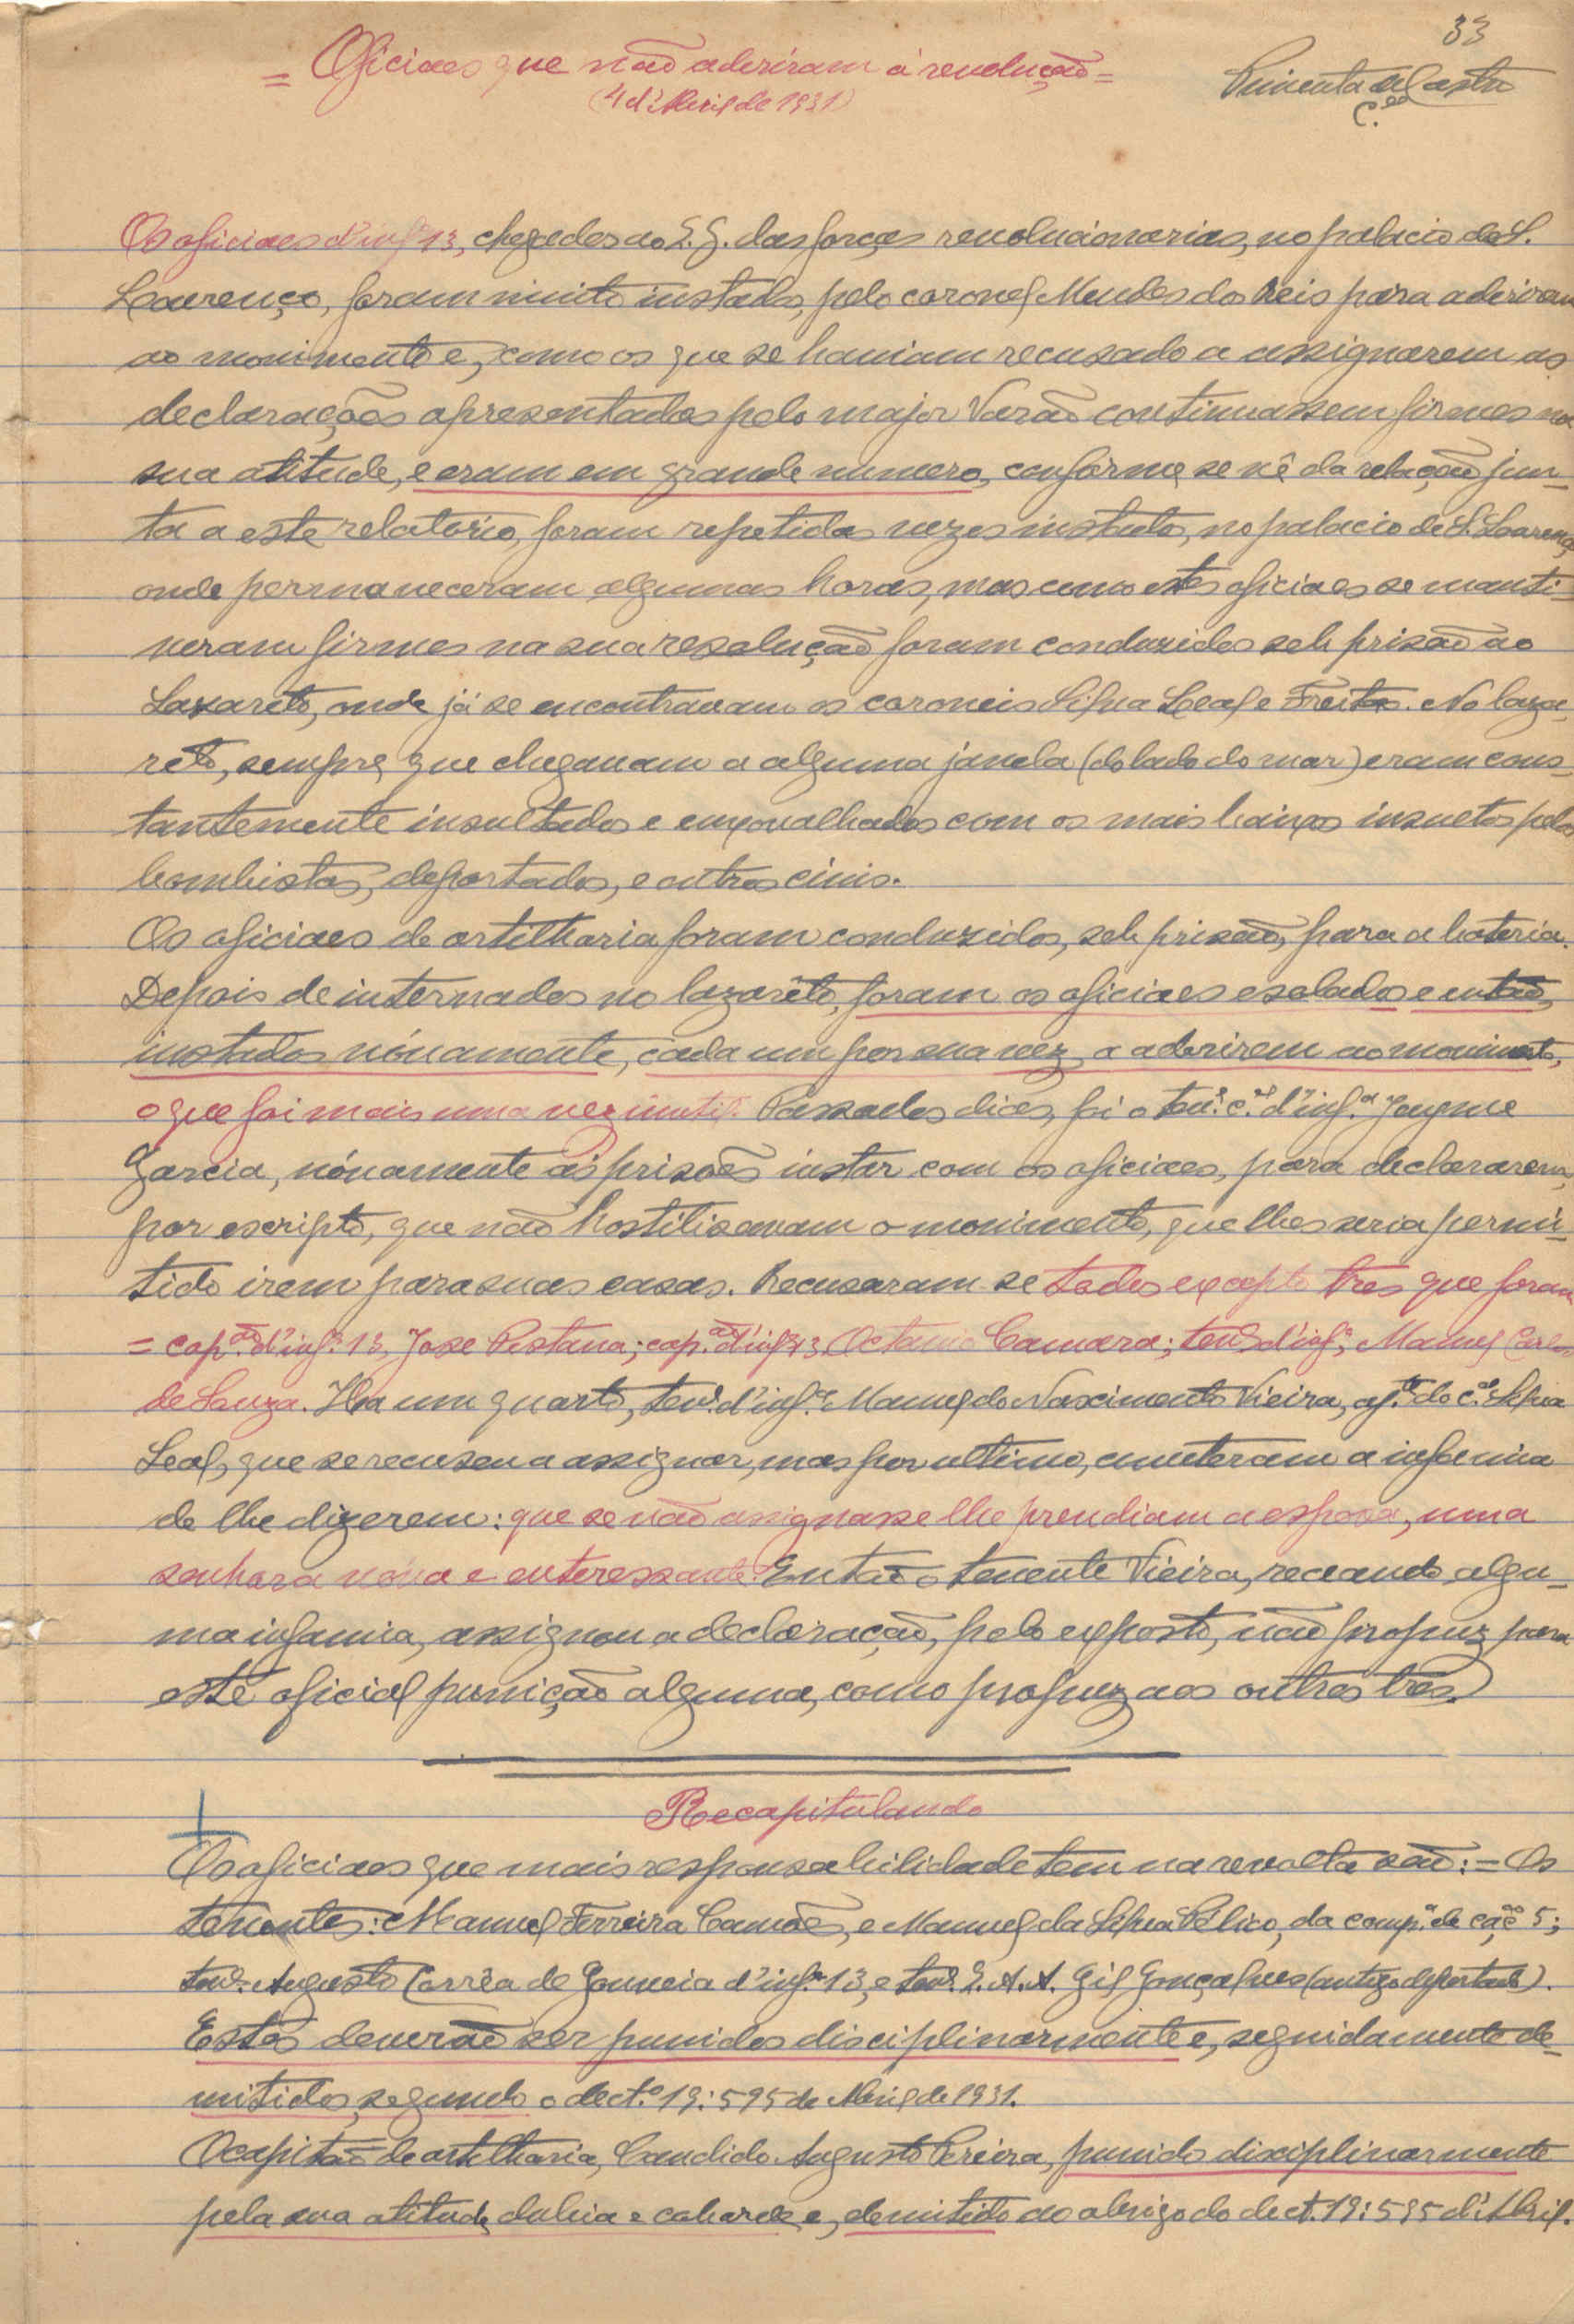 33
= Oficiaes que não aderiram á revolução =
(4 d'Abril de 1931)
Pimenta de Castro
C.el
Os oficiaes d'inf.ª 13, chegados ao Q. G. das forças revolucionarias, no palacio de S.
Lourenço, foram muito instados, pelo coronel Mendes dos Reis para aderirem
ao movimento e, como os que se haviam recusado a assignarem as
declarações apresentadas pelo major Varão continuassem firmes na
sua atitude, e eram em grande numero, conforme se vê da relação jun-
ta a este relatório, foram repetidas vezes instados, no palacio de S. Lourenço
onde permaneceram algumas horas, mas como estes oficiaes se manti-
veram firmes na sua resolução foram conduzidos sob prisão ao
Lazarêto, onde já se encontravam os coroneis Silva Leal e Freitas. No laza-
rêto, sempre que chegavam a alguma janela (do lado do mar) eram cons-
tantemente insultados e enxovalhados com os mais baixos insultos pelos
bombistas, deportados, e outros civis.
Os oficiaes de artilharia foram conduzidos, sob prisão, para a bateria.
Depois de internados no lazarêto, foram os oficiaes esolados e então,
instados nóvamente, cada um por sua vez, a aderirem ao movimento,
o que foi mais uma vez inutil. Passados dias, foi o ten.e c.el d'inf.ª Jayme
Garcia, nóvamente ás prisões instar com os oficiaes, para declararem,
por escripto, que não hostilisavam o movimento, que lhes seria permi-
tido irem para suas casas. Recusaram-se todos excepto tres que foram
= cap.ão d'inf.ª 13, José Pestana; cap.ão d'inf.ª 13 Octavio Camara; ten.e d'inf.ª, Manuel Carlos
de Souza. Ha um quarto, ten.e d'inf.ª Manuel do Nascimento Vieira, aj.te do c.el Silva
Leal, que se recusou a assignar, mas por ultimo, cometeram a infamia
de lhe dizerem: que se não assignasse lhe prendiam a esposa, uma
senhora nóva e enteressante. Então o tenente Vieira, receando algu-
ma infamia, assignou a declaração, pelo exposto, não propuz para
este oficial punição alguma, como propuz aos outros tres.)
Recapitulando
Os oficiaes que mais responsabilidade tem na revolta são: = Os
tenentes: Manuel Ferreira Camões, e Manuel da Silva Pélico, da comp.ª de caç.es 5;
ten.e Augusto Corrêa de Gouveia d'inf.ª 13, e ten.e Q. A. A. Gil Gonçalves (antigo deportado).
Estes deverão ser punidos disciplinarmente e, seguidamente de-
mitidos, segundo o dect.º 19:595 de Abril de 1931.
O capitão de artilharia, Candido Augusto Pereira, punido disciplinarmente
pela sua atitude, dubia e cobarde e, demitido ao abrigo do dect. 19:595 d'Abril.